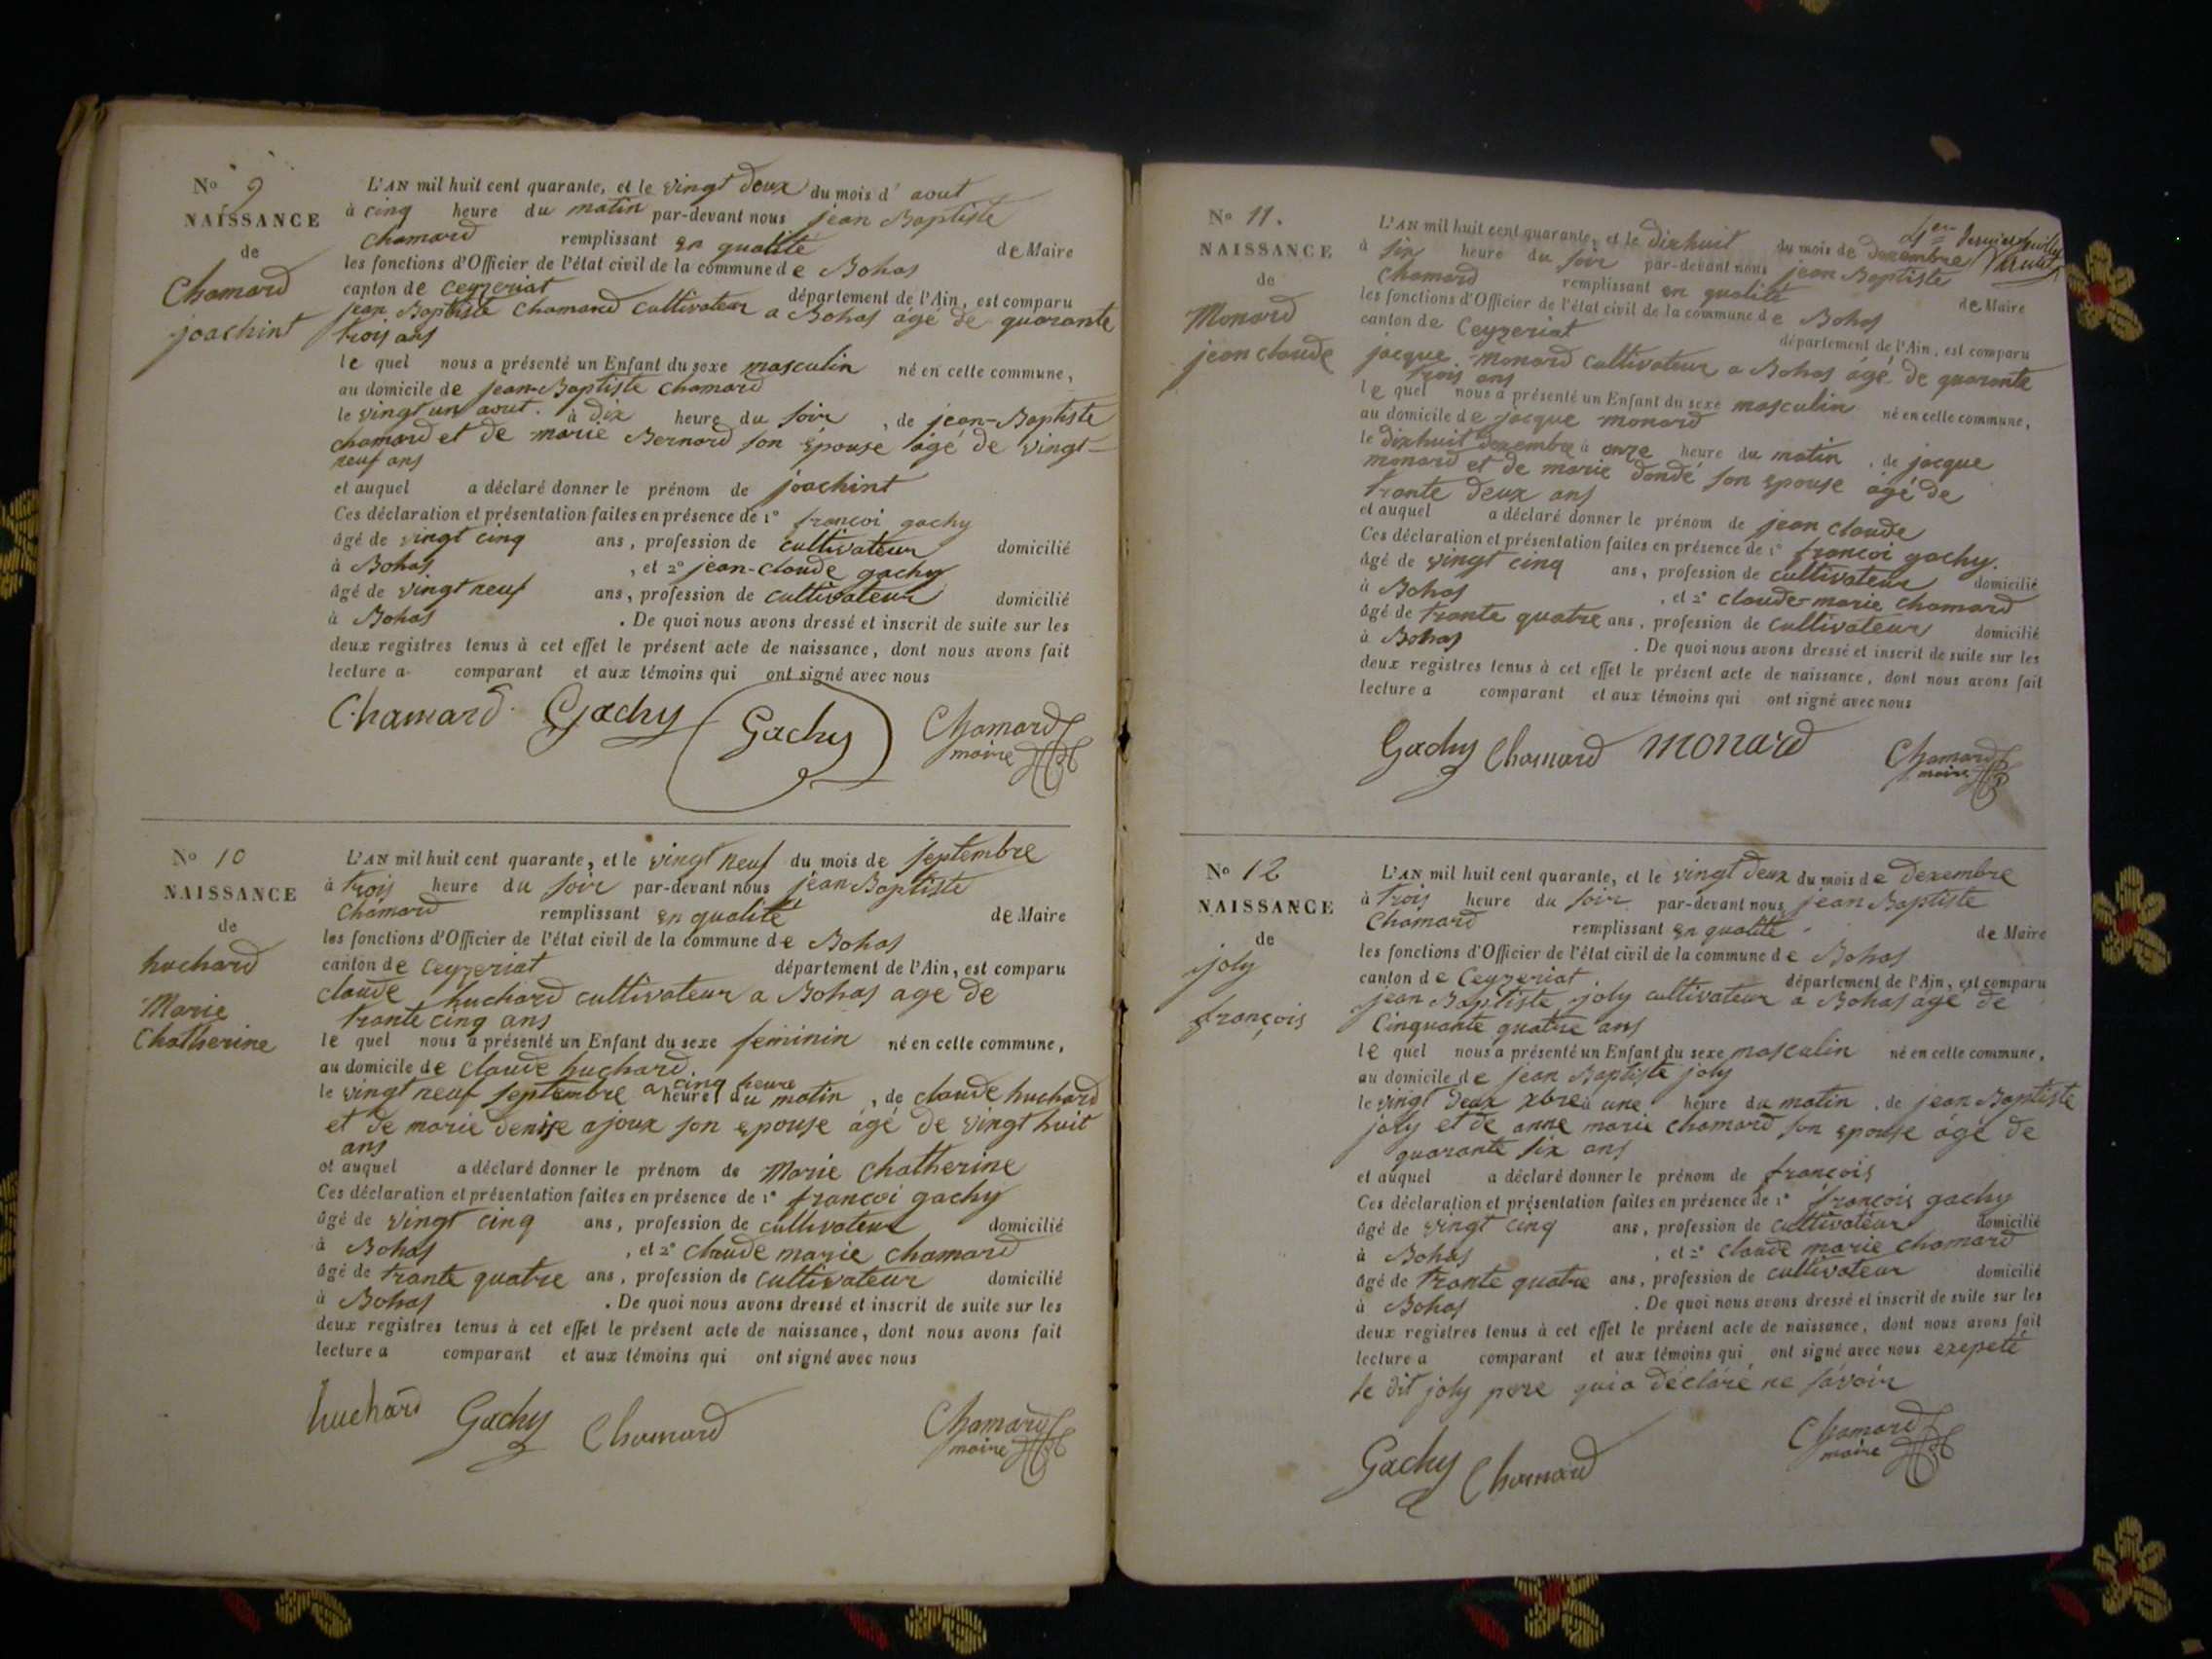 No 9
NAISSANCE
de
Chamard
joachint
L'AN mil huit cent quarante, et le vingt deux du mois d' aout
à cinq heure du matin par-devant nous jean Baptiste
chamard remplissant en qualité de Maire
les fonctions d'Officier de l'état civil de la commune de Bohas
canton de Ceyzeriat département de l'Ain, est comparu
jean Baptiste Chamard cultivateur a Bohas âgé de quarante
trois ans
le quel nous a présenté un Enfant du sexe masculin né en cette commune,
au domicile de jean-Baptiste chamard
le vingt un aout. à dix heure du soir, de jean-Baptiste
chamard et de marie Bernard son épouse âgé de vingt-
neuf ans
et auquel a déclaré donner le prénom de joachint
Ces déclaration et présentation faites en présence de 1° francoi gachy
âgé de vingt cinq ans, profession de cultivateur domicilié
à Bohas, et 2° jean-claude gachy
âgé de vingt neuf ans, profession de cultivateur domicilié
à Bohas. De quoi nous avons dressé et inscrit de suite sur les
deux registres tenus à cet effet le présent acte de naissance, dont nous avons fait
lecture a comparant et aux témoins qui ont signé avec nous
Chamard Gachy Gachy Chamard
maire
No 10
NAISSANCE
de
huchard
Marie
Chatherine
L'AN mil huit cent quarante, et le vingt neuf du mois de septembre
à trois heure du soir par-devant nous jean Baptiste
Chamard remplissant en qualité de Maire
les fonctions d'Officier de l'état civil de la commune de Bohas
canton de Ceyzeriat département de l'Ain, est comparu
claude huchard cultivateur a Bohas age de
trante cinq ans
le quel nous a présenté un Enfant du sexe feminin né en cette commune,
au domicile de claude huchard
le vingt neuf septembre a cinq heure heure du matin, de claude huchard
et de marie denise ajoux son epouse âgé de vingt huit
ans
et auquel a déclaré donner le prénom de Marie Chatherine
Ces déclaration et présentation faites en présence de 1° francoi gachy
âgé de vingt cinq ans, profession de cultivateur domicilié
à Bohas, et 2° claude marie chamard
âgé de trante quatre ans, profession de cultivateur domicilié
à Bohas. De quoi nous avons dressé et inscrit de suite sur les
deux registres tenus à cet effet le présent acte de naissance, dont nous avons fait
lecture a comparant et aux témoins qui ont signé avec nous
huchard Gachy Chamard Chamard
maire
No 11.
NAISSANCE
de
Monard
jean claude
L'AN mil huit cent quarante, et le dixhuit du mois de dexembre
à six heure du soir par-devant nous jean Baptiste
Chamard remplissant en qualité de Maire
les fonctions d'Officier de l'état civil de la commune de Bohas
canton de Ceyzeriat département de l'Ain, est comparu
jacque monard cultivateur a Bohas âgé de quarante
trois ans
le quel nous a présenté un Enfant du sexe masculin né en cette commune,
au domicile de jacque monard
le dixhuit dexembre à onze heure du matin, de jacque
monard et de marie dondé son epouse âgé de
trante deux ans
et auquel a déclaré donner le prénom de jean claude
Ces déclaration et présentation faites en présence de 1° francoi gachy.
âgé de vingt cinq ans, profession de cultivateur domicilié
à Bohas, et 2° claude-marie chamard
âgé de trante quatre ans, profession de cultivateur domicilié
à Bohas. De quoi nous avons dressé et inscrit de suite sur les
deux registres tenus à cet effet le présent acte de naissance, dont nous avons fait
lecture a comparant et aux témoins qui ont signé avec nous
Gachy Chamard monard Chamard
maire
No 12
NAISSANCE
de
joly
françois
L'AN mil huit cent quarante, et le vingt deux du mois de dexembre
à trois heure du soir par-devant nous jean Baptiste
Chamard remplissant en qualité de Maire
les fonctions d'Officier de l'état civil de la commune de Bohas
canton de Ceyzeriat département de l'Ain, est comparu
jean Baptiste joly cultivateur a Bohas age de
Cinquante quatre ans
le quel nous a présenté un Enfant du sexe masculin né en cette commune,
au domicile de jean Baptiste joly
le vingt deux xbre à une heure du matin, de jean Baptiste
joly et de anne marie chamard son epouse âgé de
quarante six ans
et auquel a déclaré donner le prénom de françois
Ces déclaration et présentation faites en présence de 1° françois gachy
âgé de vingt cinq ans, profession de cultivateur domicilié
à Bohas, et 2° claude marie chamard
âgé de trante quatre ans, profession de cultivateur domicilié
à Bohas. De quoi nous avons dressé et inscrit de suite sur les
deux registres tenus à cet effet le présent acte de naissance, dont nous avons fait
lecture a comparant et aux témoins qui ont signé avec nous exepeté
le dit joly pere qui a déclaré ne savoir
Gachy Chamard Chamard
maire